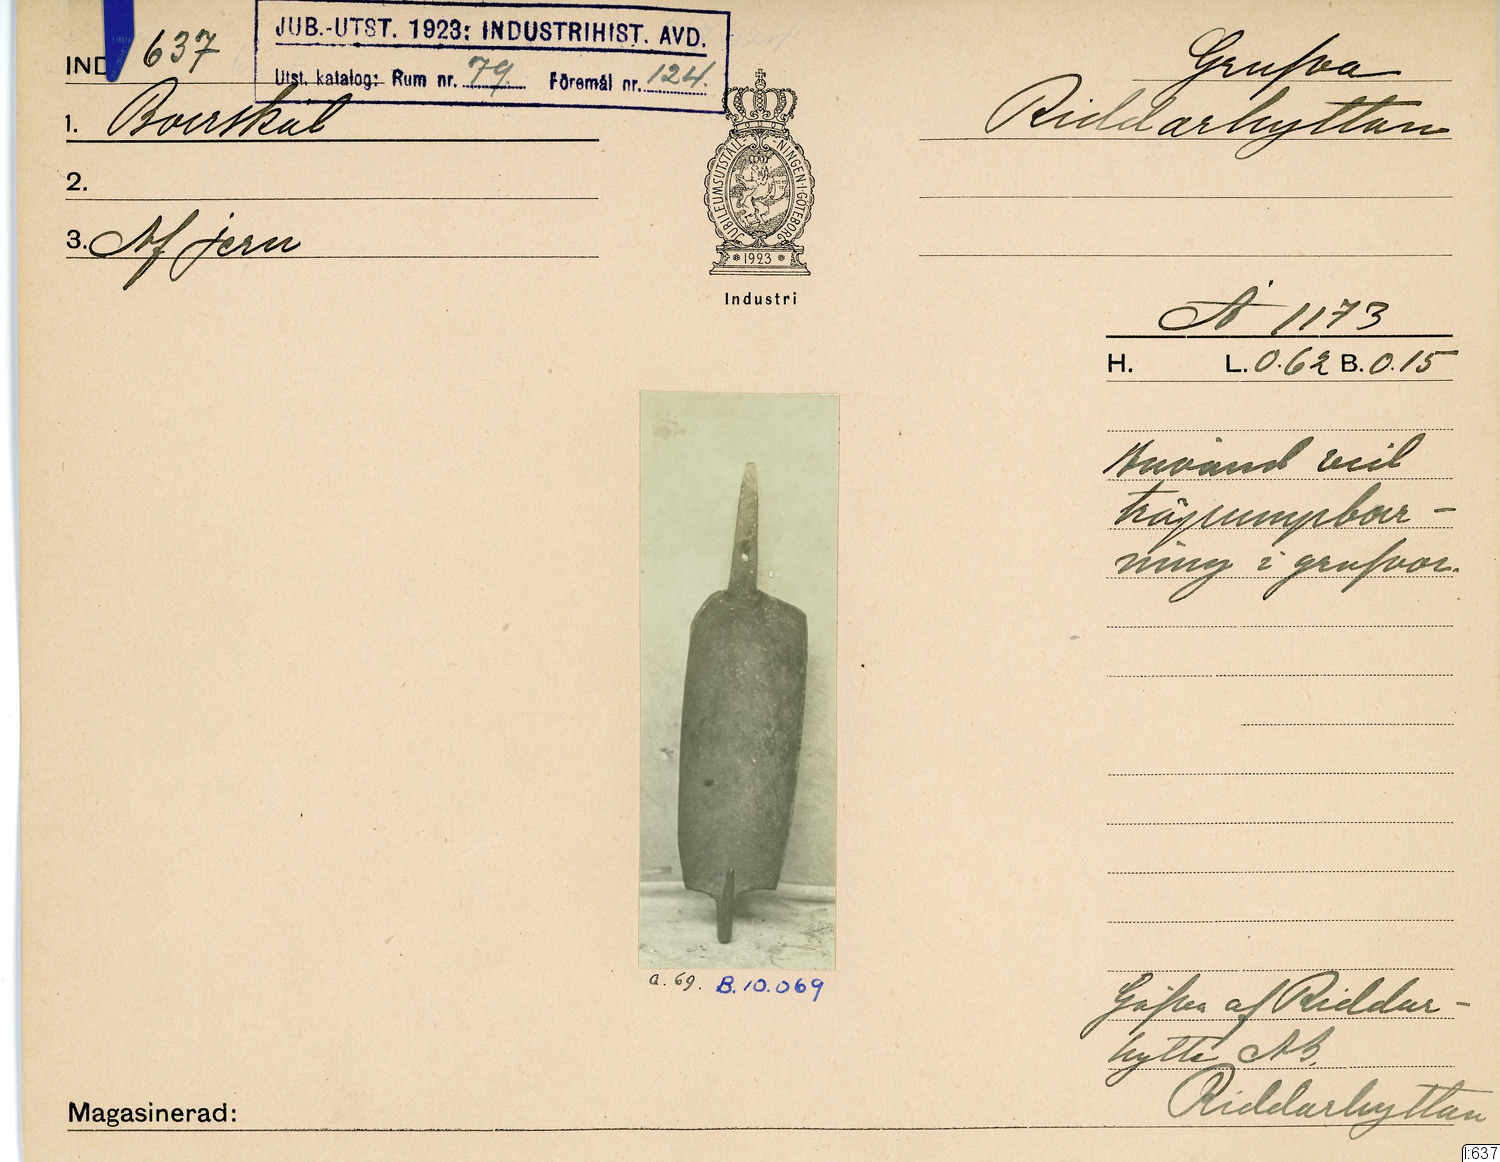 JUB.-UTST. 1923: INDUSTRIHIST. AVD.
Utst. katalog: Rum nr. 79. Föremål nr. 124.
IND 637
1. Borrskål
2.
3. Af jern
JUBILEUMSUTSTÄLLNINGEN·I·GÖTEBORG
1923
Industri
Grufva
Riddarhyttan
A 1173
H. L. 0.62 B. 0.15
Använd vid
träpumpbor-
ning i grufvor.
a. 69. B.10.069
Gåfva af Riddar-
hytte AB,
Riddarhyttan
Magasinerad:
I:637